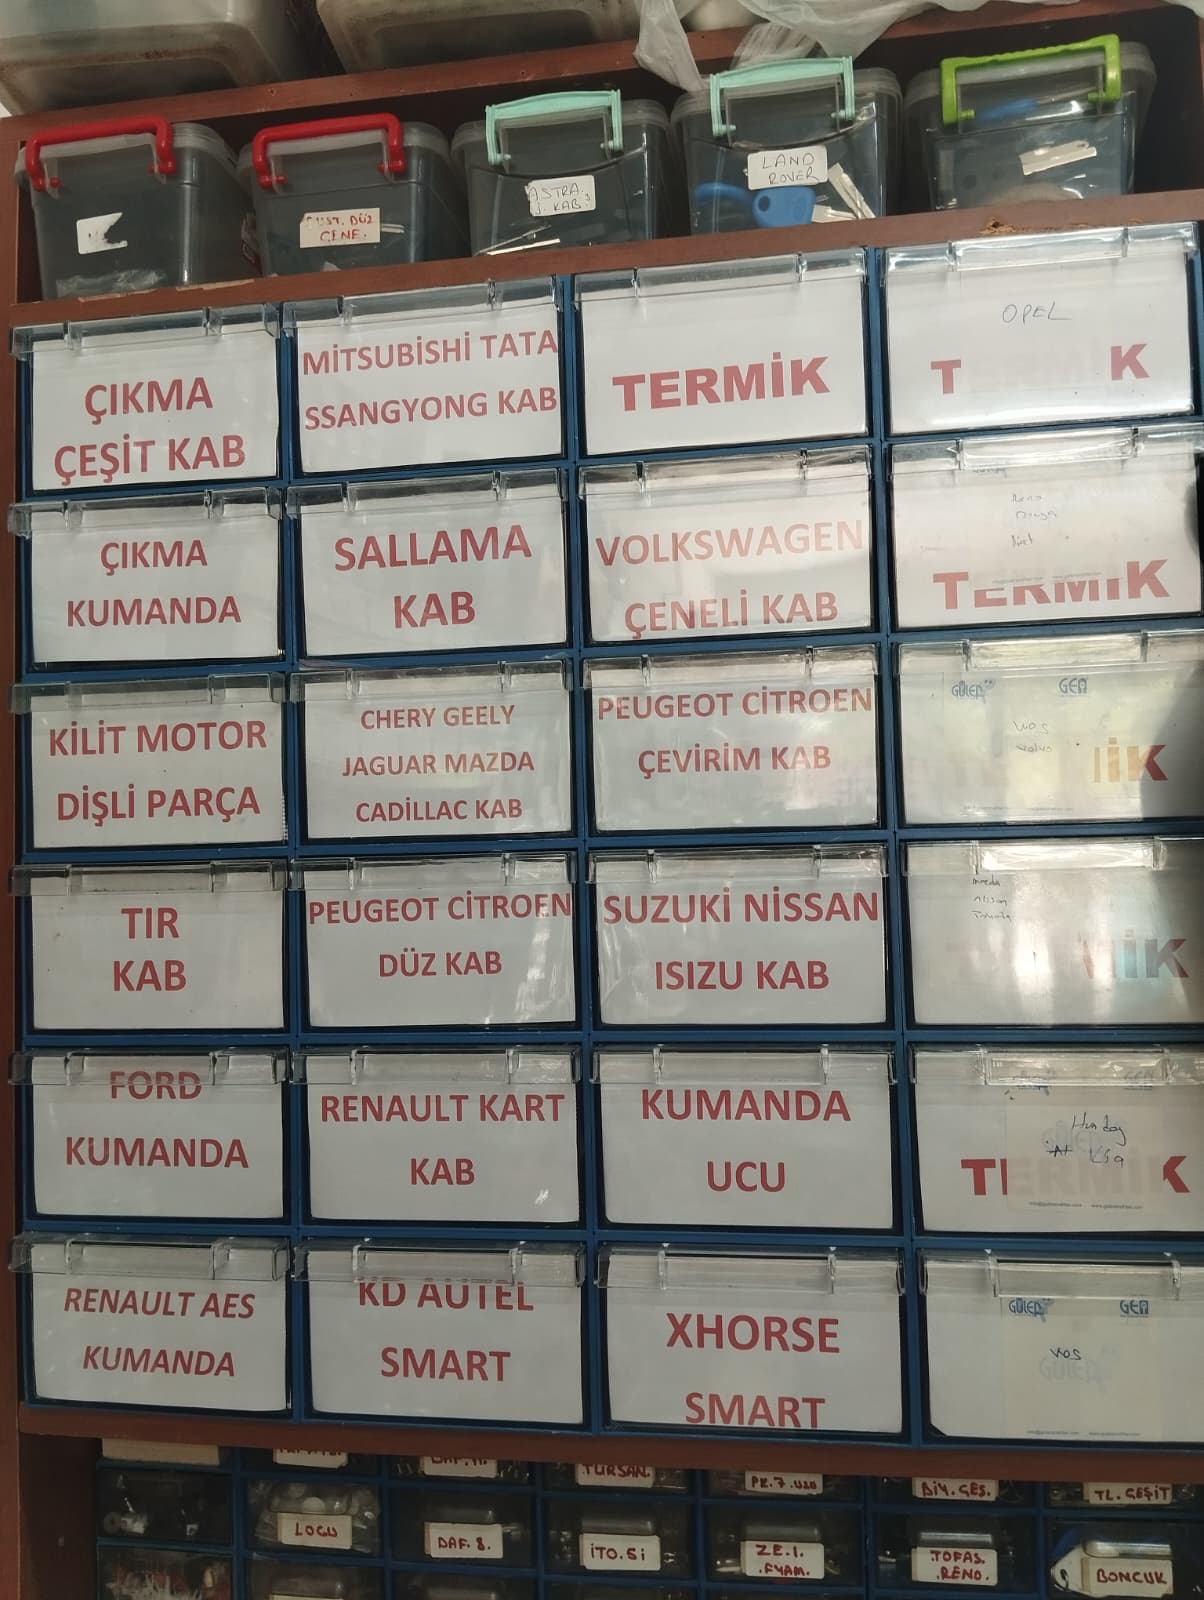 ÜST. DÜZ
ÇENE.
ASTRA.
J. KAB
LAND
ROVER
ÇIKMA
ÇEŞİT KAB
MİTSUBİSHİ TATA
SSANGYONG KAB
TERMİK
OPEL
T K
ÇIKMA
KUMANDA
SALLAMA
KAB
VOLKSWAGEN
ÇENELİ KAB
TERMİK
KİLİT MOTOR
DİŞLİ PARÇA
CHERY GEELY
JAGUAR MAZDA
CADILLAC KAB
PEUGEOT CİTROEN
ÇEVİRİM KAB
GÜLER GEM
wos
volvo
İK
TIR
KAB
PEUGEOT CİTROEN
DÜZ KAB
SUZUKİ NİSSAN
ISIZU KAB
nissan
İK
FORD
KUMANDA
RENAULT KART
KAB
KUMANDA
UCU
TERMİK
RENAULT AES
KUMANDA
KD AUTEL
SMART
XHORSE
SMART
GÜLER GEM
wos
TURSAN.
PK.7.U20
DİY.GES.
TL.ÇEŞİT
LOGU
DAF.8.
İTO.Sİ
ZE.1.
.FYAM.
TOFAS.
.RENO.
BONCUK